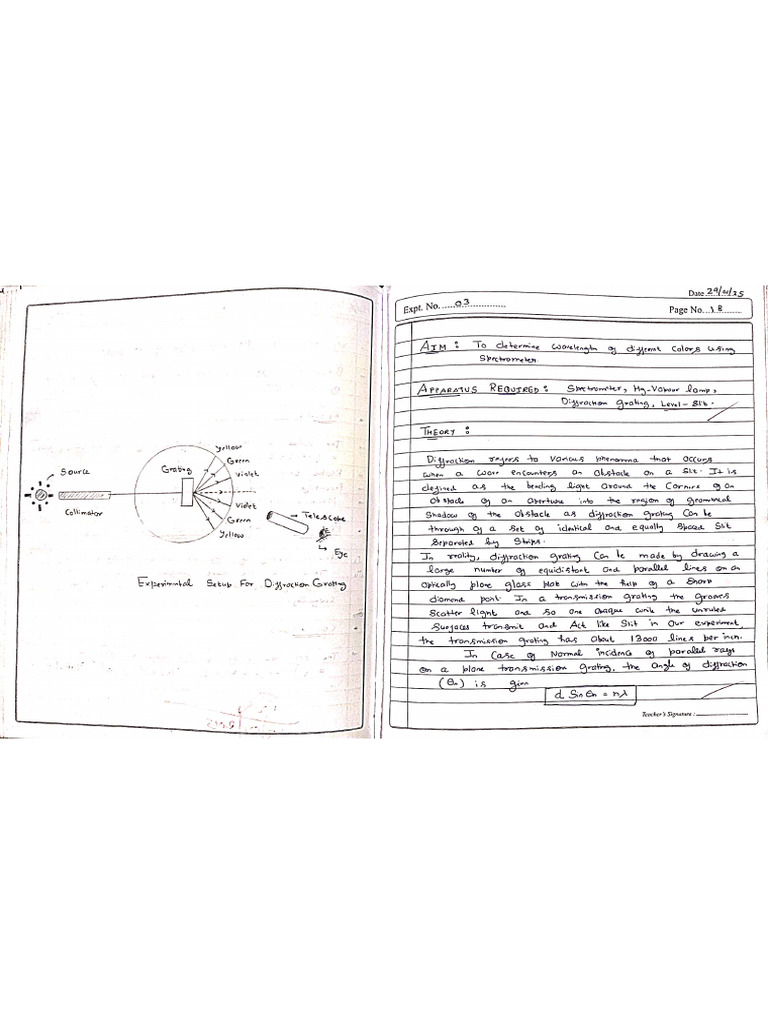 Source
Collimator
Grating
Yellow
Green
Violet
Violet
Green
Yellow
Telescope
Eye
Experimental Setup For Diffraction Grating
Date 29/01/25
Expt. No. 03
Page No. 18
AIM : To determine wavelength of different colors using
Spectrometer.
APPARATUS REQUIRED : Spectrometer, Hg-Vapour lamp,
Diffraction grating, Level-Slit.
THEORY :
Diffraction refers to various phenomna that occurs
when a wave encounters an obstacle on a Slit. It is
defined as the bending light around the corners of an
obstacle of an aperture into the region of geometrical
Shadow of the obstacle as diffraction grating can be
through of a set of identical and equally spaced Slit
Separated by Strips.
In reality, diffraction grating can be made by drawing a
large number of equidistant and parallel lines on an
optically plane glass plate with the help of a Sharp
diamond point. In a transmission grating the grooves
Scatter light and so are opaque while the unruled
Surfaces transmit and Act like Slit in our experiment,
the transmission grating has about 13000 lines per inch.
In case of Normal incidenc of parallel rays
on a plane transmission grating, the angle of diffraction
(θn) is given
d Sin θn = nλ
Teacher's Signature :